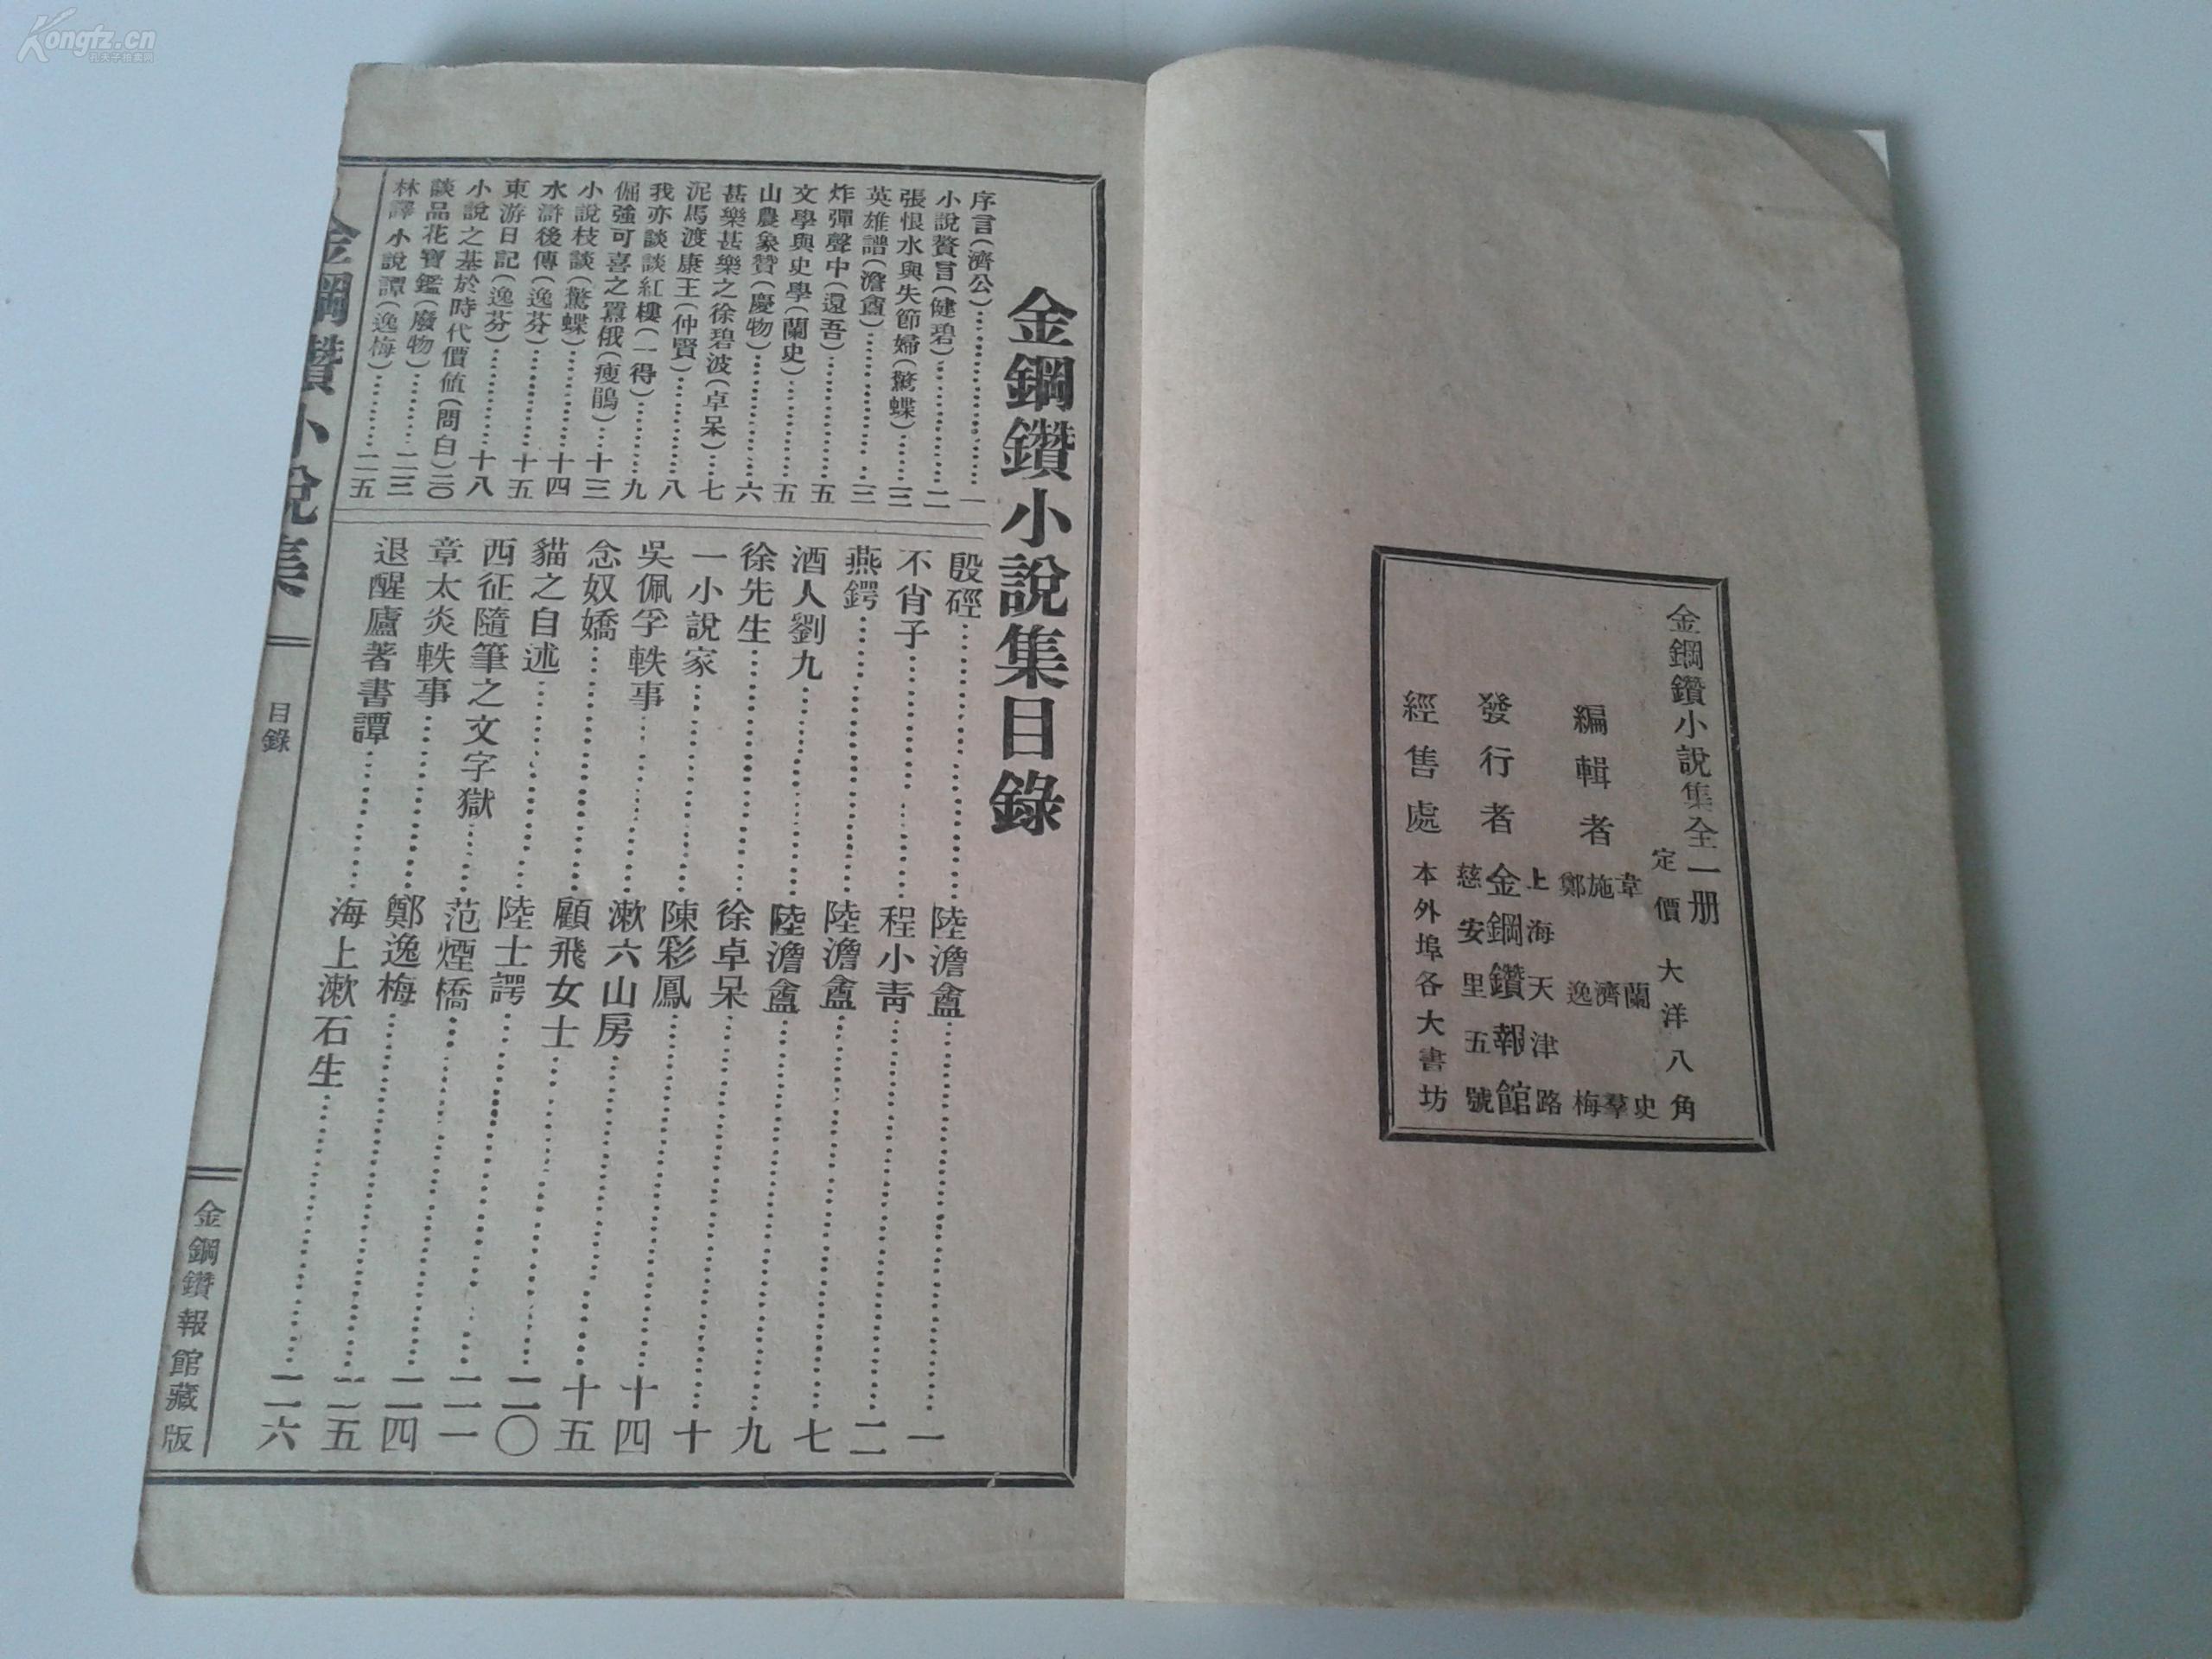 Kongfz.cn
金鋼鑽小說集全一册
定價 大洋八角
編輯者 韋蘭史 施濟羣 鄭逸梅
發行者 上海天津路 金鋼鑽報館 慈安里五號
經售處 本外埠各大書坊
金鋼鑽小說集目錄
序言(濟公)一
小說贅言(健碧)二
張恨水與失節婦(驚蝶)三
英雄譜(澹盦)三
炸彈聲中(還吾)五
文學與史學(蘭史)五
山農象贊(慶物)六
甚樂甚樂之徐碧波(卓呆)七
泥馬渡康王(仲賢)八
我亦談談紅樓(一得)九
倔強可喜之囂俄(瘦鵑)十三
小說枝談(驚蝶)十四
水滸後傳(逸芬)十五
東游日記(逸芬)十八
小說之基於時代價值(問白)二〇
談品花寶鑑(廢物)二三
林譯小說譚(逸梅)二五
殷硜 陸澹盦 一
不肖子 程小青 二
燕鍔 陸澹盦 七
酒人劉九 陸澹盦 九
徐先生 徐卓呆 十
一小說家 陳彩鳳 十四
吳佩孚軼事 漱六山房 十五
念奴嬌 顧飛女士 二〇
貓之自述 陸士諤 二一
西征隨筆之文字獄 范煙橋 二四
章太炎軼事 鄭逸梅 二五
退醒廬著書譚 海上漱石生 二六
金鋼鑽小說集
目錄
金鋼鑽報館藏版